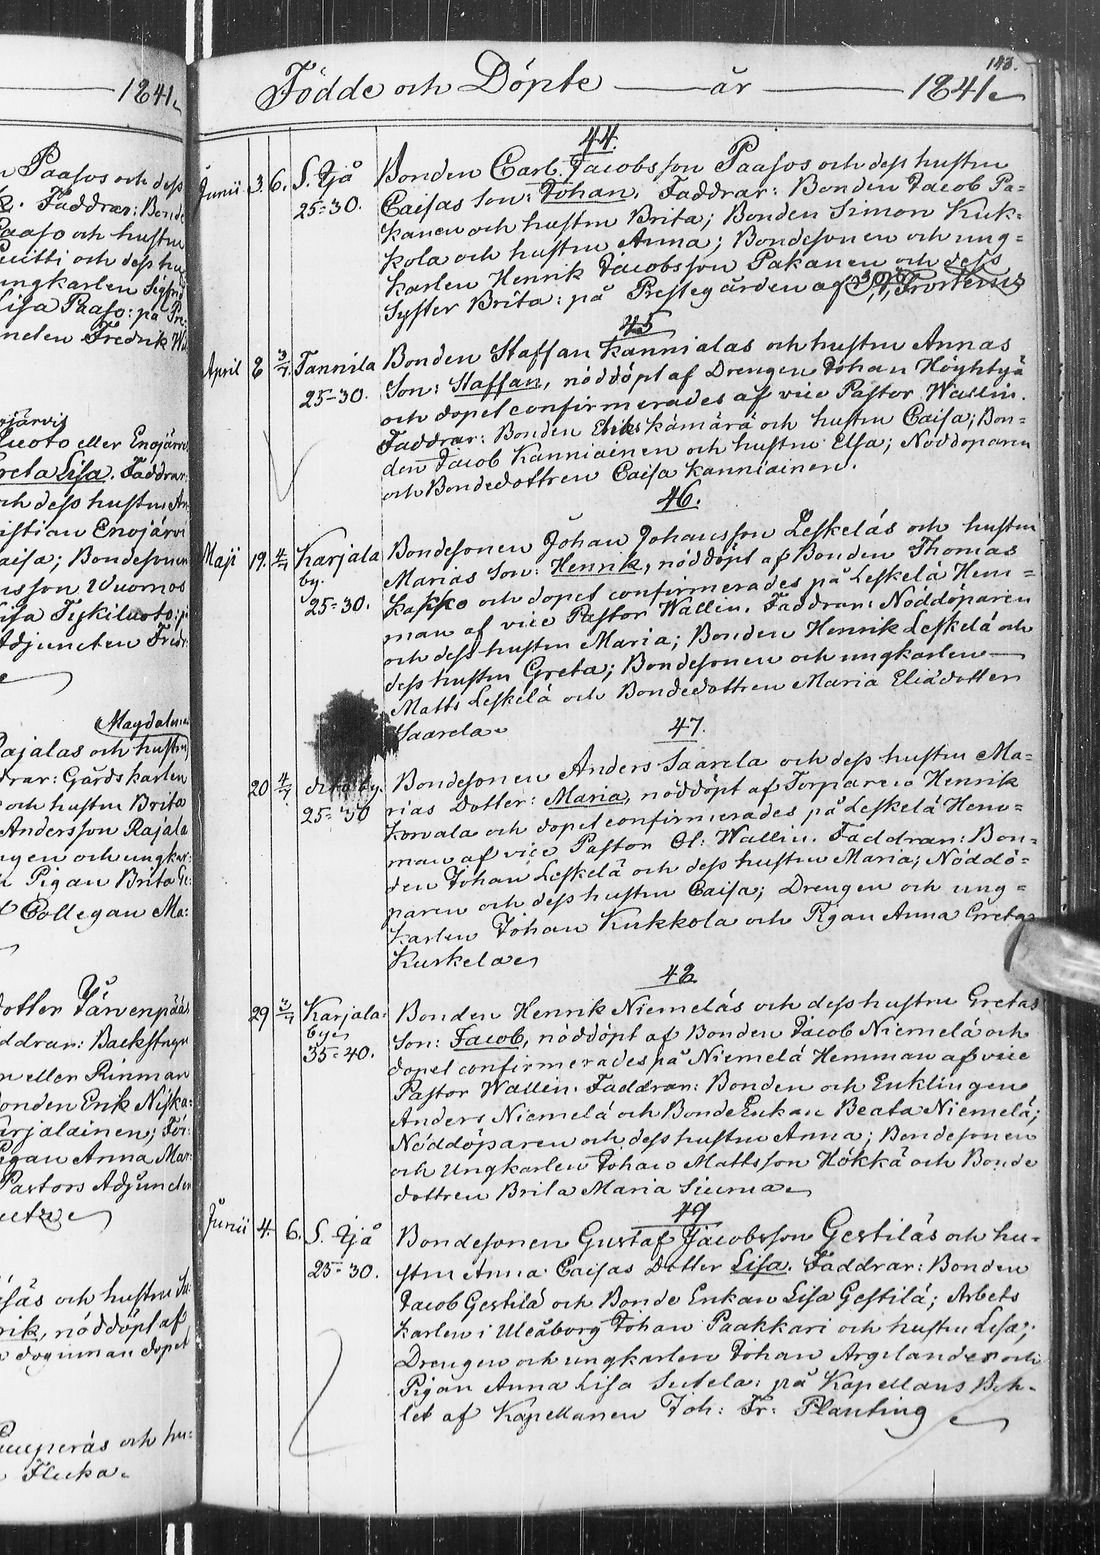 1841.
n Paasos och dess
Faddrar: Bonde
Paaso och hustru
och dess hu
ungkarlen Sigfrid
Lisa Paaso: på Pre
Fredrik Wa
Luoto eller Enojärvi
reta Lisa. Faddrar:
och dess hustru An
istian Enojärvi
aisa; Bondesonen
nsson Wuornos
isa Teskiluoto: p
Adjuncten Fredr
Magdalena
Rajalas och hustru
drar: Gårdskarlen
och hustru Brita
Andersson Rajala
ngen och ungkar=
Pigan Brita Gr:
Collegan Ma:
dotter Järvenpääs
ddrar: Backstugu
n eller Rinman
onden Erik Niska:
arjalainen; För:
Pigan Anna Mar:
Pastors Adjuncten
och hustru
rik, nöddöpt af
dopet
och hu:
143.
Födde och Döpte — år — 1841
44.
Junii 3. 6. S. Ijå Bonden Carl Jacobsson Paasos och dess hustru
25=30. Caisas Son: Johan. Faddrar: Bonden Jacob Pa=
kanen och hustru Brita; Bonden Simon Kuk=
kola och hustru Anna; Bondesonen och ung=
karlen Henrik Jacobsson Pakanen och dess
Syster Brita: på Prestegården af Frosterus
45
April 8 3/7 Tannila Bonden Staffan Kannialas och hustru Annas
25=30. Son: Staffan, nöddöpt af Drengen Johan Höyhtyä
och dopet confirmerades af vice Pastor Wallin.
Faddrar: Bonden Eriks Kämärä och hustru Caisa; Bon=
den Jacob Kanniainen och hustru Elsa; Nöddöparen
och Bondedottren Caisa Kanniainen.
46.
Maji 19. 4/7 Karjala Bondesonen Johan Johansson Leskeläs och hustru
by. Marias Son: Henrik, nöddöpt af Bonden Thomas
25=30. Kakko och dopet confirmerades på Leskelä Hem=
man af vice Pastor Wallin. Faddrar: Nöddöparen
och dess hustru Maria; Bonden Henrik Leskelä och
dess hustru Greta; Bondesonen och ungkarlen
Matts Leskelä och Bondedottren Maria Eliædotter
Saarela
47.
20 4/7 dito by. Bondesonen Anders Saarela och dess hustru Ma=
25=30 rias Dotter: Maria, nöddöpt af Torparen Henrik
Korvala och dopet confirmerades på Leskelä Hem=
man af vice Pastor Ol: Wallin. Faddrar: Bon=
den Johan Leskelä och dess hustru Maria; Nöddö=
paren och dess hustru Caisa; Drengen och ung=
karlen Johan Kukkola och Pigan Anna Greta
Kuskela
48
29 3/7 Karjala Bonden Henrik Niemeläs och dess hustru Gretas
by Son: Jacob, nöddöpt af Bonden Jacob Niemelä och
35=40. dopet confirmerades på Niemelä Hemman af vice
Pastor Wallin. Faddrar: Bonden och Enklingen
Anders Niemelä och Bonde Enkan Beata Niemelä;
Nöddöparen och dess hustru Anna; Bondesonen
och Ungkarlen Johan Mattsson Hökkä och Bonde
dottren Brita Maria Siurua
49
Junii 4. 6. S. Ijå Bondesonen Gustaf Jacobsson Gestiläs och hu=
25=30. stru Anna Caisas Dotter Lisa. Faddrar: Bonden
Jacob Gestilä och Bonde Enkan Lisa Gestilä; Arbets
karlen i Uleåborg Johan Paakkari och hustru Lisa;
Drengen och ungkarlen Johan Argelander och
Pigan Anna Lisa Sutela: på Kapellans Bohl=
let af Kapellanen Joh: Fr: Planting